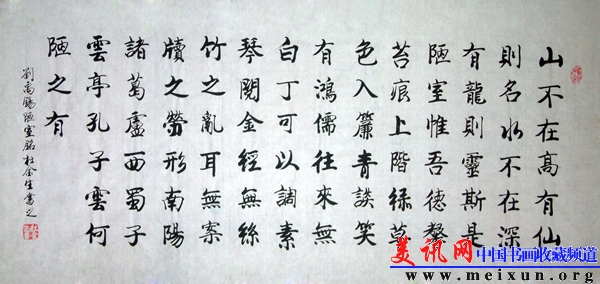 山不在高有仙
則名水不在深
有龍則靈斯是
陋室惟吾德馨
苔痕上階緑草
色入簾青談笑
有鴻儒往來無
白丁可以調素
琴閱金經無絲
竹之亂耳無案
牘之勞形南陽
諸葛廬西蜀子
雲亭孔子雲何
陋之有
劉禹錫陋室銘杜金生書之
美讯网中国书画收藏频道
www.meixun.org